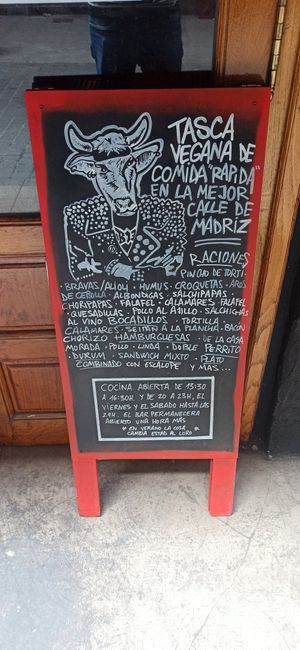 TASCA
VEGANA DE
COMIDA "RAPIDA"
EN LA MEJOR
CALLE DE
MADRIZ
RACIONES
PINCHO DE TORTI·
BRAVAS/ALIOLI · HUMUS · CROQUETAS · AROS
DE CEBOLLA · ALBONDIGAS · SALCHIPAPAS ·
CHORIPAPAS · FALAFEL · CALAMARES · FALAFEL
· QUESADILLAS · POLLO AL AJILLO · SALCHICHAS
AL VINO BOCADILLOS · TORTILLA ·
CALAMARES · SEITAN A LA PLANCHA · BACON
CHORIZO HAMBURGUESAS · DE LA CASA
· POLLO · LINDA · DOBLE PERRITO
DURUM · SANDWICH MIXTO · PLATO
COMBINADO CON ESCALOPE Y MAS...
COCINA ABIERTA DE 13:30
A 16:30H Y DE 20 A 23H, EL
VIERNES Y EL SABADO HASTA LAS
24H. EL BAR PERMANECERA
ABIERTO UNA HORA MAS
* EN VERANO LA COSA
CAMBIA ESTAD AL LORO